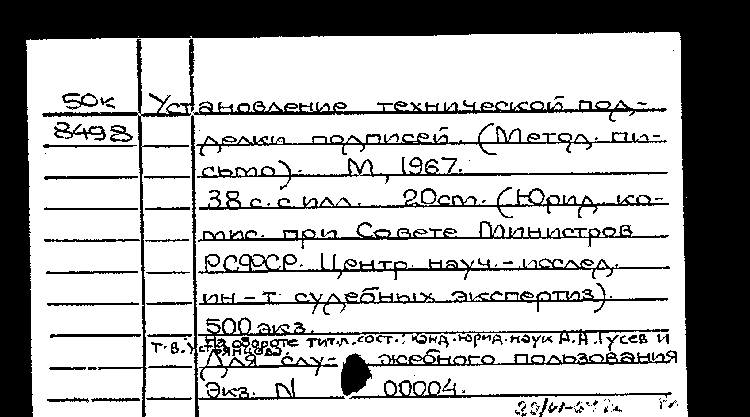 50к Установление технической под-
8498 делки подписей. (Метод. пи-
сьмо). М., 1967.
38 с. с илл. 20см. (Юрид. ко-
мис. при Совете Министров
РСФСР. Центр. науч.-исслед.
ин-т судебных экспертиз).
500 экз.
На обороте тит.л. сост.: канд. юрид. наук А.А. Гусев и
Т.В. Устьянцева.
Для слу- жебного пользования
Экз. N 00004.